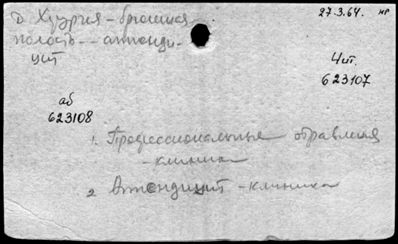 Д. Хирургия - брюшная 27.3.64. нр
полость -- аппенди-
цит
Чит.
623107
аб
623108
1. Профессиональные отравления
- клиника
2. Аппендицит - клиника